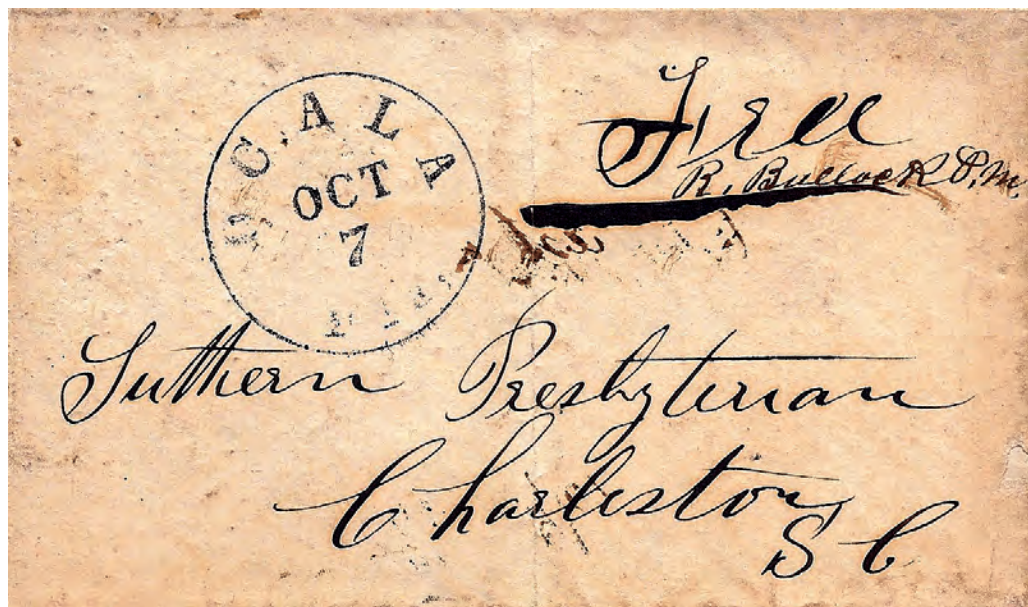 OCALA
OCT
7
Fla.
Free
R. Bullock P.M.
Suthern Presbyterian
Charleston
S C